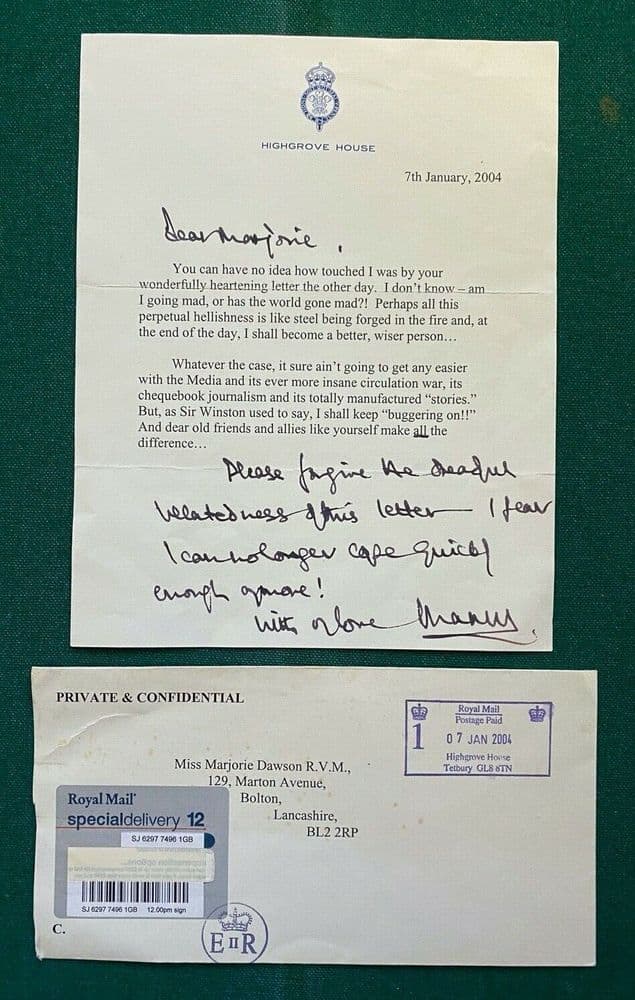 HIGHGROVE HOUSE
7th January, 2004
Dear Marjorie,
You can have no idea how touched I was by your
wonderfully heartening letter the other day. I don't know – am
I going mad, or has the world gone mad?! Perhaps all this
perpetual hellishness is like steel being forged in the fire and, at
the end of the day, I shall become a better, wiser person…
Whatever the case, it sure ain't going to get any easier
with the Media and its ever more insane circulation war, its
chequebook journalism and its totally manufactured "stories."
But, as Sir Winston used to say, I shall keep "buggering on!!"
And dear old friends and allies like yourself make all the
difference…
Please forgive the dreadful
belatedness of this letter – I fear
I can no longer cope quickly
enough anymore!
With love
PRIVATE & CONFIDENTIAL
Royal Mail
Postage Paid
1
07 JAN 2004
Highgrove House
Tetbury GL8 8TN
Miss Marjorie Dawson R.V.M.,
129, Marton Avenue,
Bolton,
Lancashire,
BL2 2RP
Royal Mail
specialdelivery 12
SJ 6297 7496 1GB
SJ 6297 7496 1GB 12.00pm sign
C.
E II R